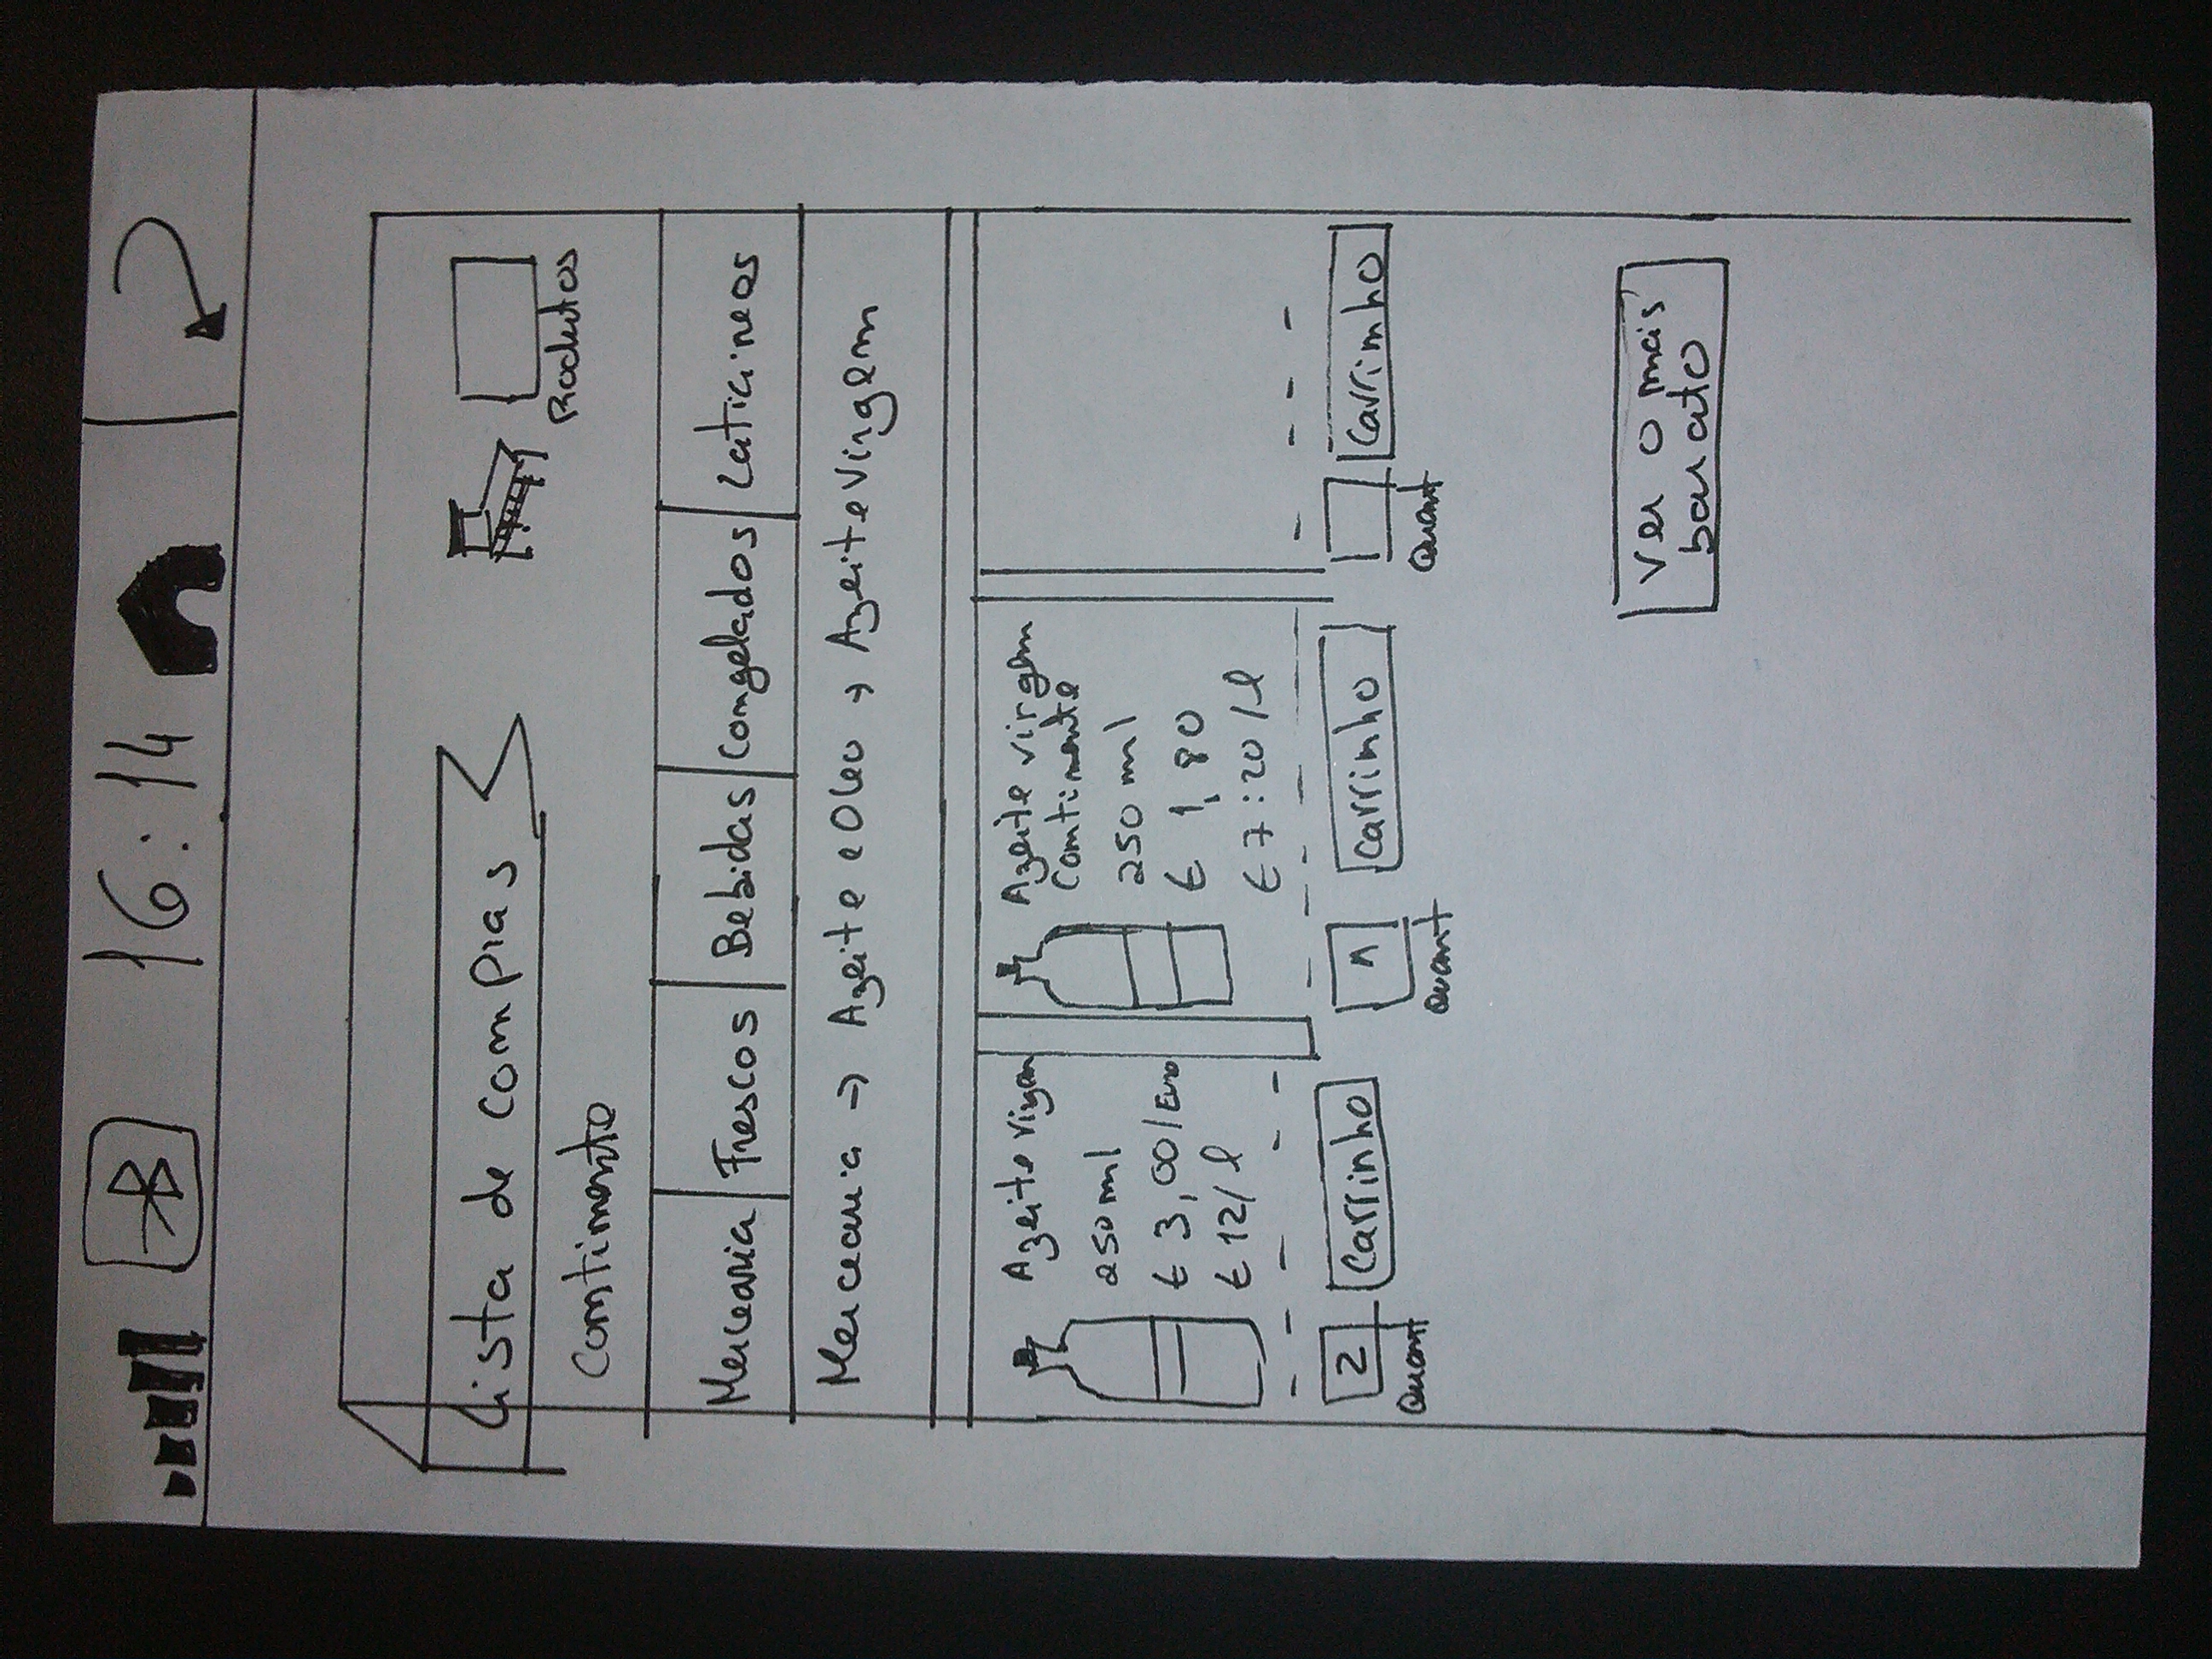 16:14
Lista de compras
Produtos
Continente
Mercearia Frescos Bebidas Congelados Laticineos
Mercearia → Azeite e Oleo → Azeite Virgem
Azeite Virgem
250 ml
€ 3,00/Euro
€ 12/l
2 Carrinho
Quant
Azeite virgem
Continente
250 ml
€ 1,80
€ 7:20/l
1 Carrinho
Quant
Carrinho
Quant
Ver o mais
barato